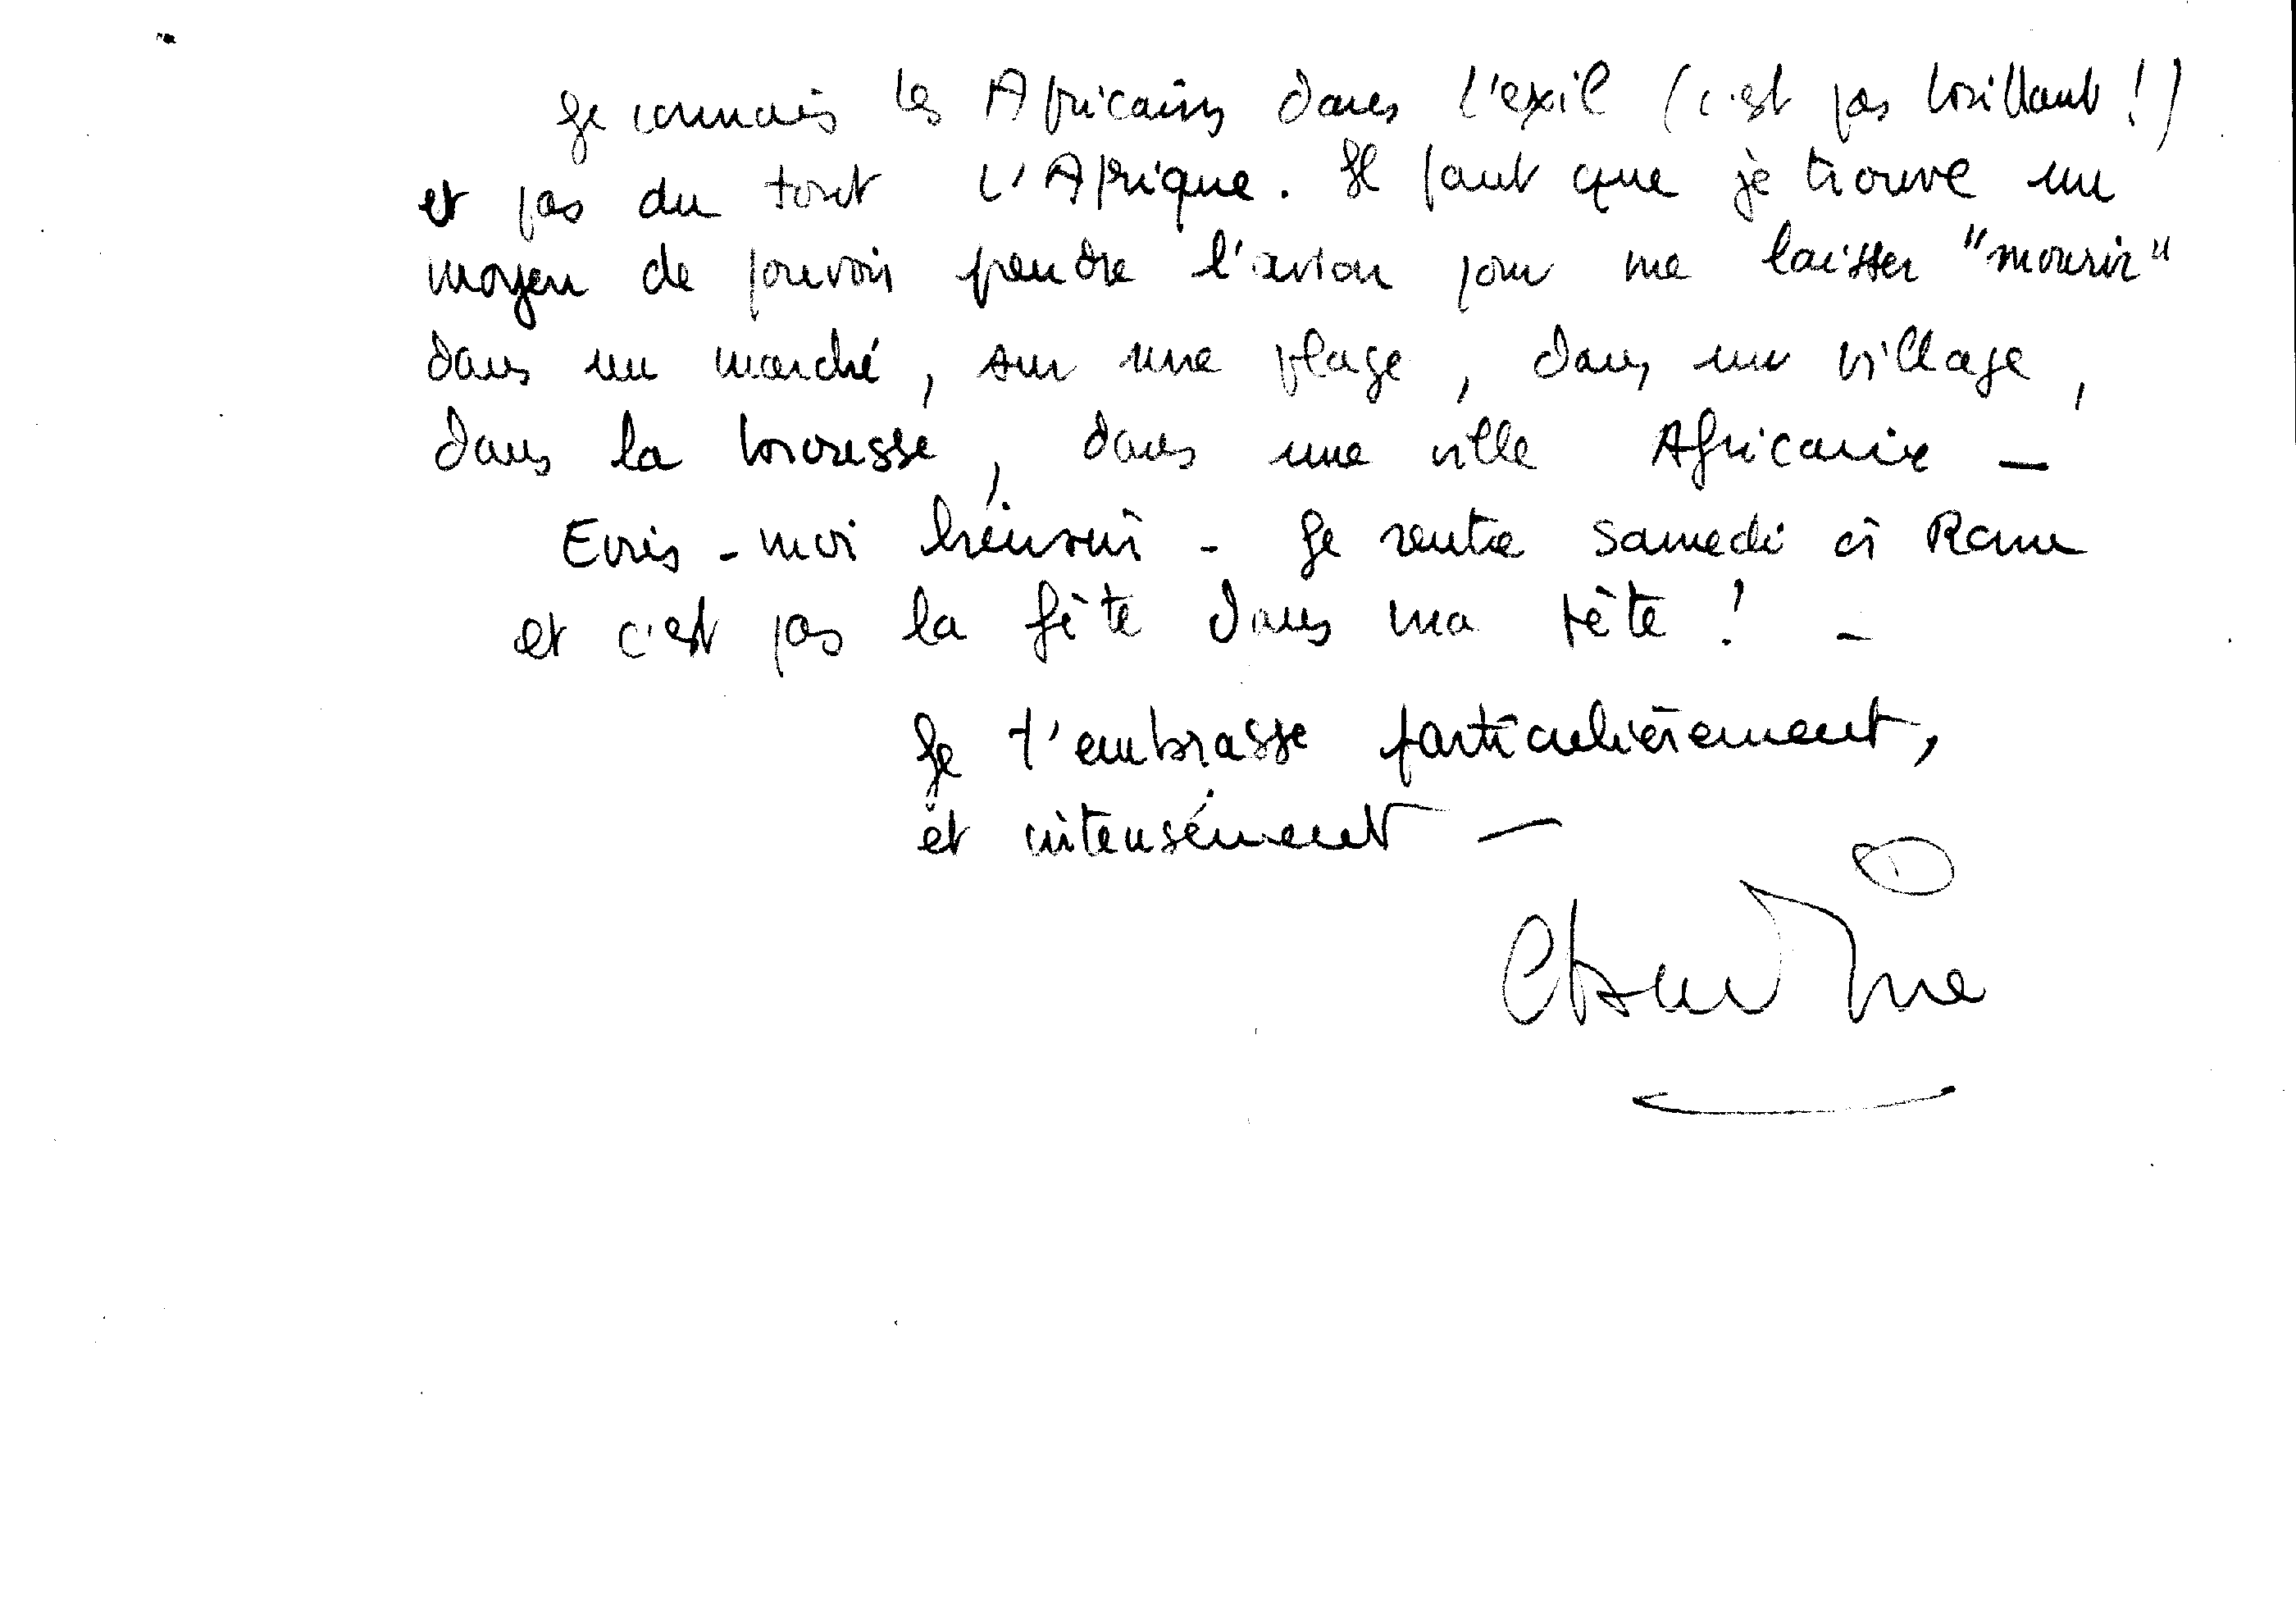 Je connais les Africains dans l'exil (c'est pas brillant !)
et pas du tout l'Afrique. Il faut que je trouve un
moyen de pouvoir prendre l'avion pour me laisser "mourir"
dans un marché, sur une plage, dans un village,
dans la brousse, dans une ville Africaine —
Ecris-moi - Je rentre samedi à Rome
et c'est pas la fête dans ma tête ! -
Je t'embrasse particulièrement,
et intensément —
Claudine